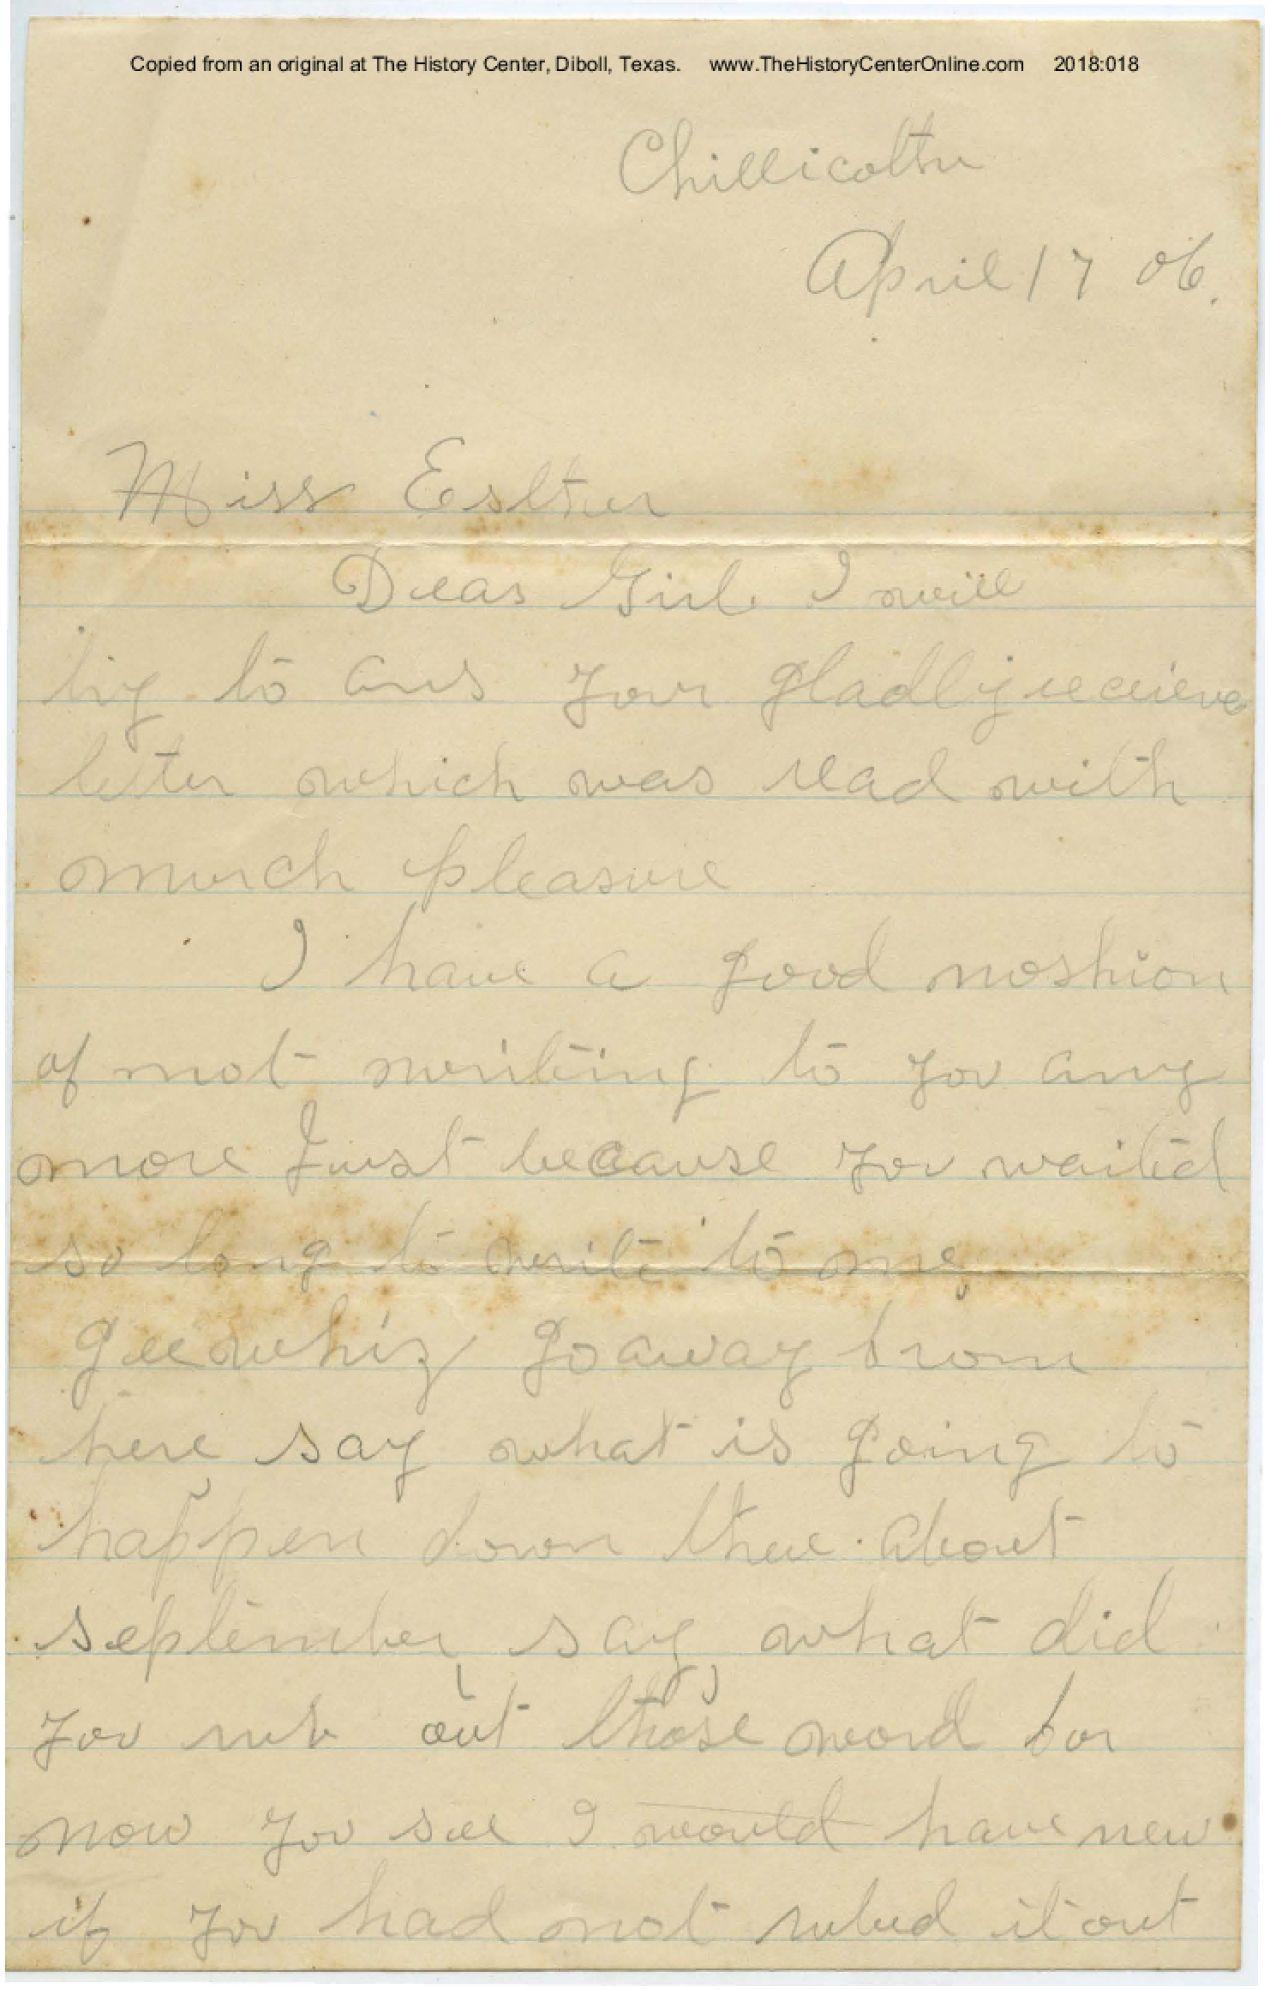 Copied from an original at The History Center, Diboll, Texas. www.TheHistoryCenterOnline.com 2018:018
Chillicothe
April 17 06.
Miss Esther
Dear Girl I will
try to ans your gladly recieve
letter which was read with
much pleasure
I have a good noshion
of not writing to you any
more Just because you waited
so long to write to me
Gee whiz go away from
here say what is going to
happen down there about
september, say, what did
you rub out those word for
now you see I would have new
if you had not rubed it out